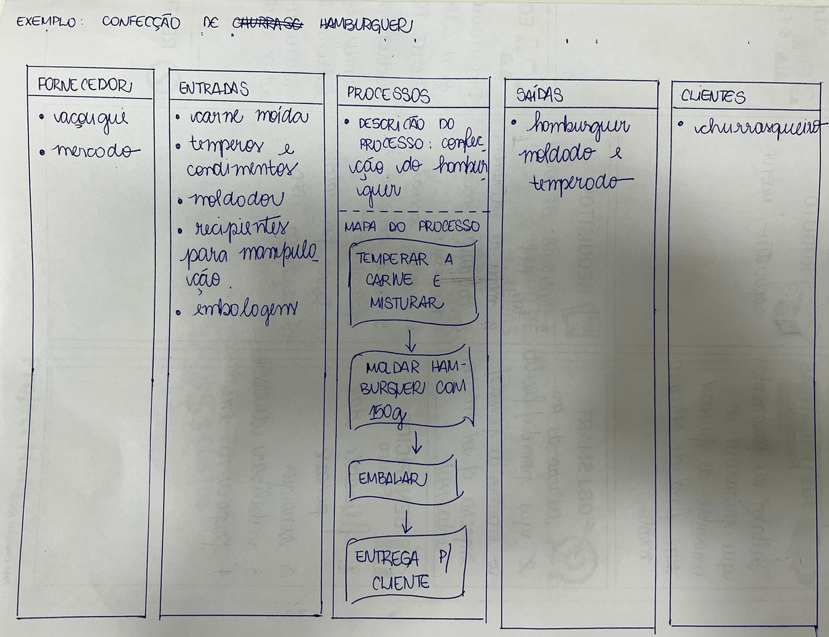 EXEMPLO: CONFECÇÃO DE CHURRASC HAMBURGUER
FORNECEDOR
• açougue
• mercado
ENTRADAS
• carne moída
• temperos e
condimentos
• moldador
• recipientes
para manipula
ção.
• embalagem
PROCESSOS
• DESCRIÇÃO DO
PROCESSO: confec
ção do hambur
guer
MAPA DO PROCESSO
TEMPERAR A
CARNE E
MISTURAR
MOLDAR HAM-
BURGUER COM
150g
EMBALAR
ENTREGA P/
CLIENTE
SAÍDAS
• hamburguer
moldado e
temperado
CLIENTES
• churrasqueiro